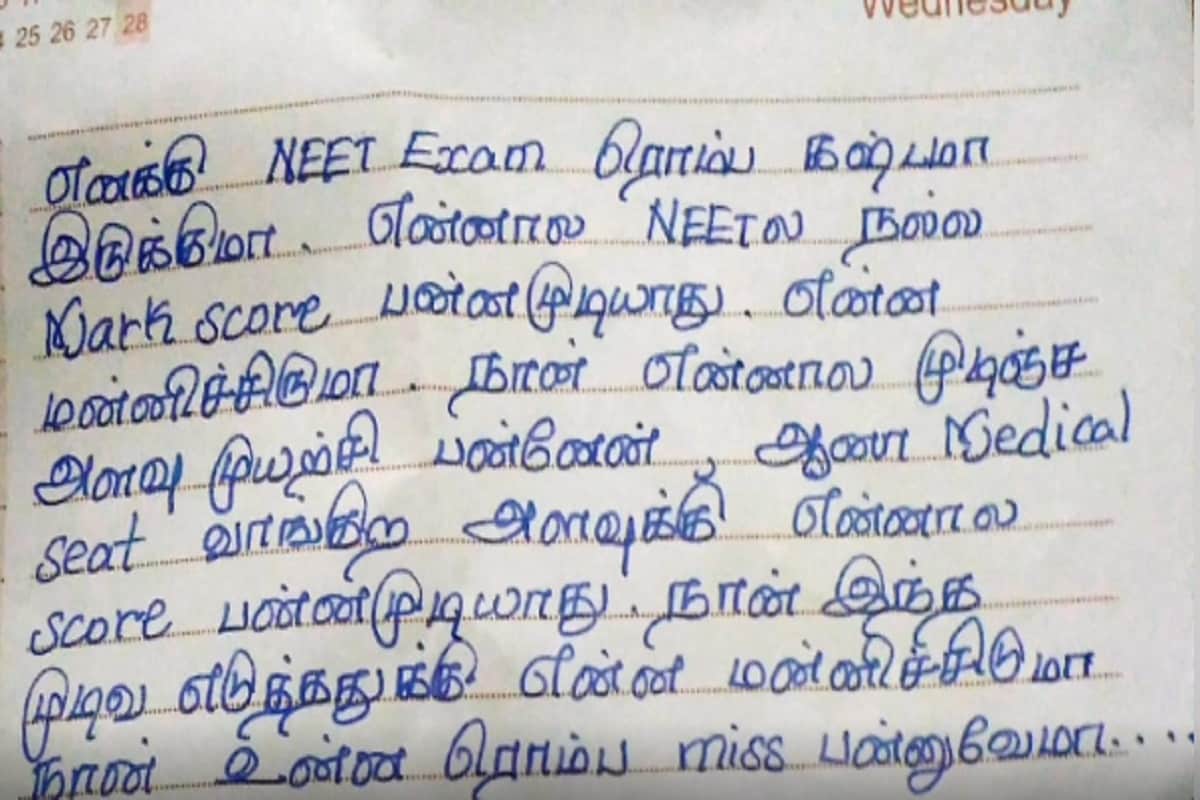 25 26 27 28
Wednesday
எனக்கு NEET Exam ரொம்ப கஷ்டமா
இருக்குமா. என்னால NEETல நல்ல
Mark score பண்ணமுடியாது. என்ன
மன்னிச்சிருமா. நான் என்னால முடிஞ்ச
அளவு முயற்சி பண்னேன், ஆனா Medical
seat வாங்குற அளவுக்கு என்னால
score பண்ணமுடியாது. நான் இந்த
முடிவ எடுத்ததுக்கு என்ன மன்னிச்சிடுமா
நான் உன்ன ரொம்ப miss பண்ணுவேமா....